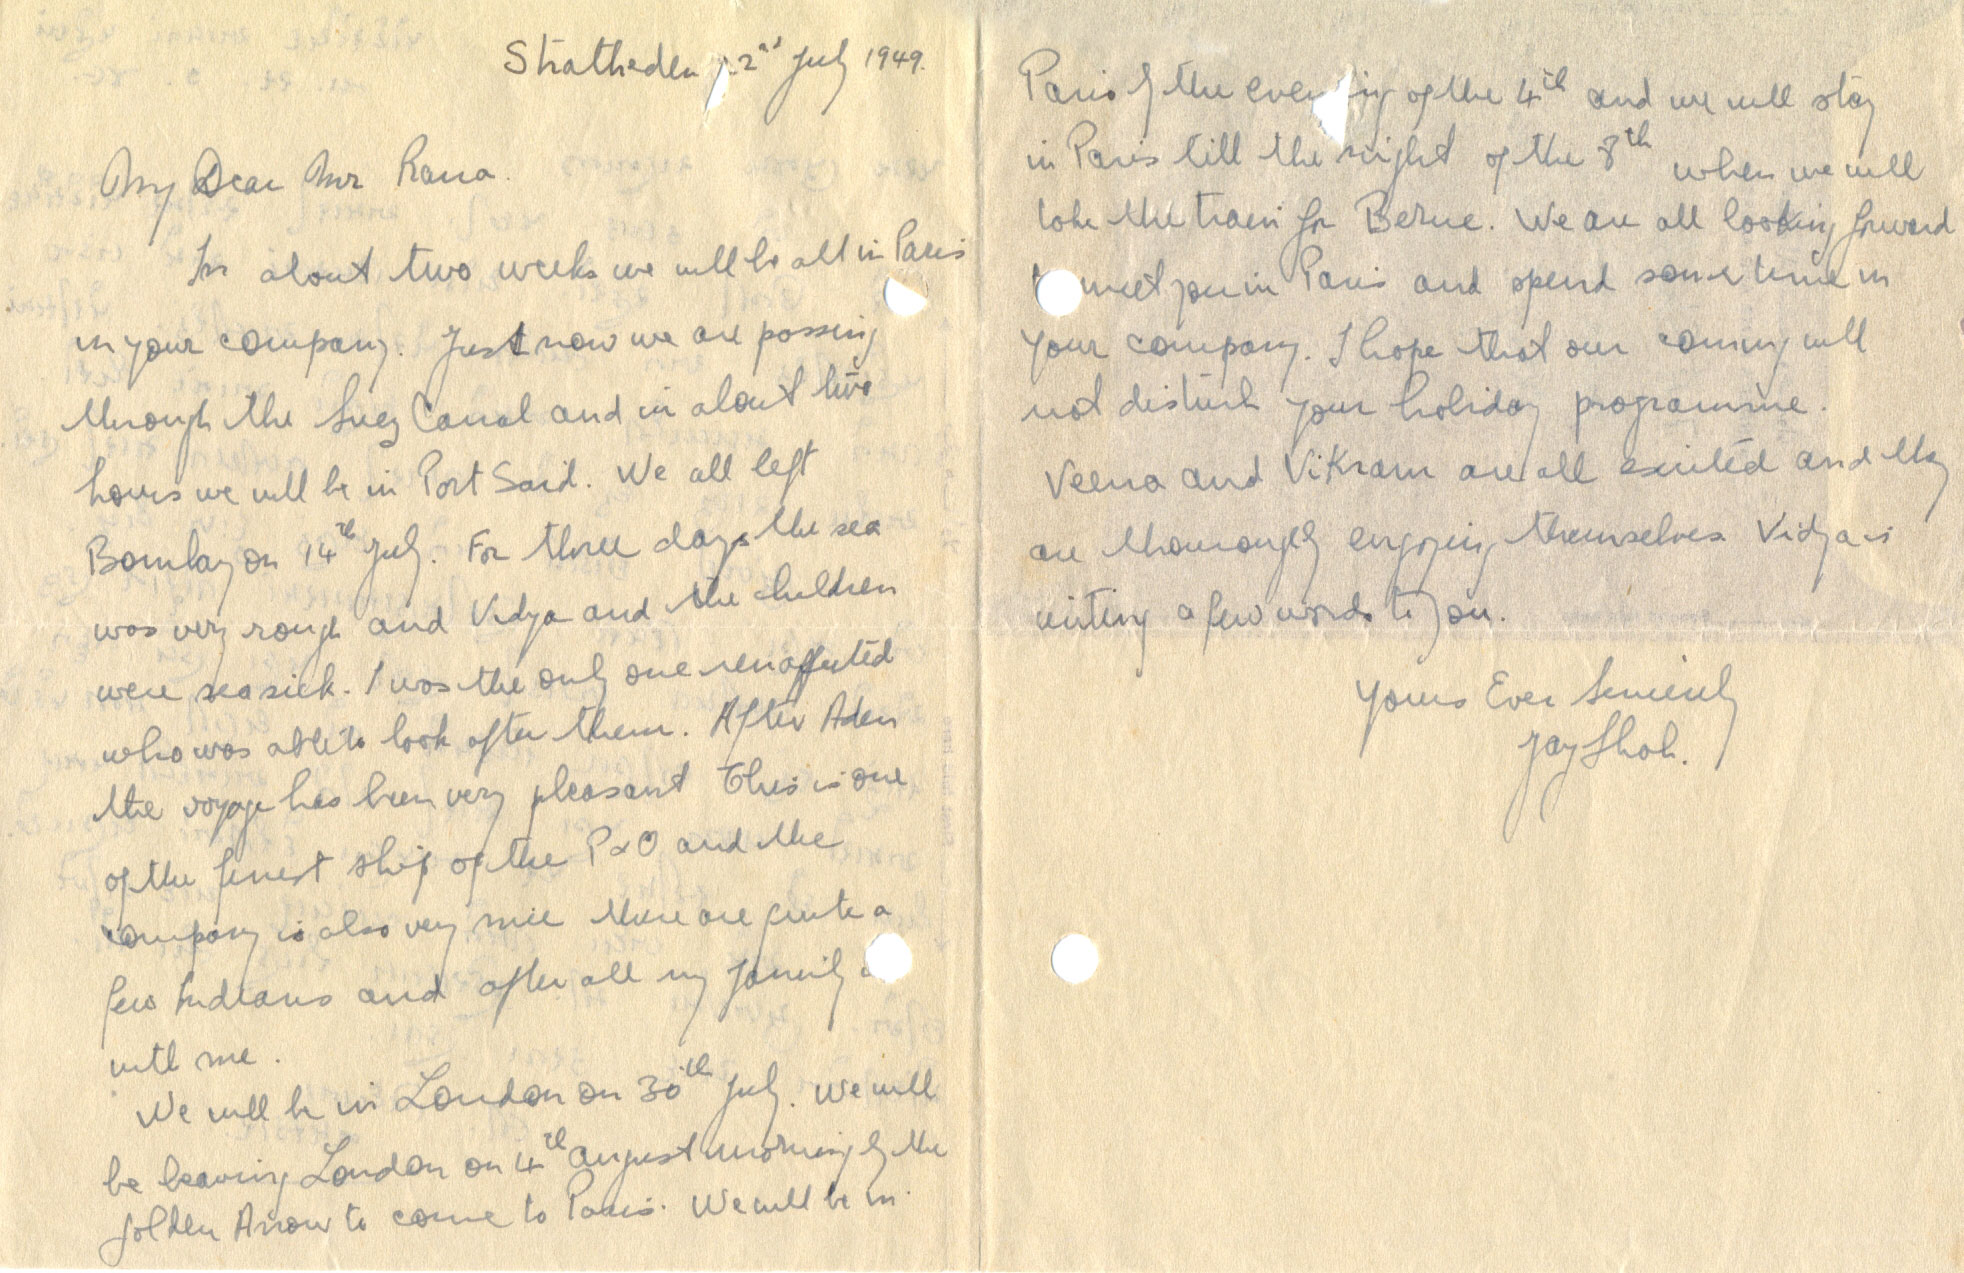 Stratheden 22nd July 1949.
My Dear Mr Rana.
In about two weeks we will be all in Paris
in your company. Just now we are passing
through the Suez Canal and in about two
hours we will be in Port Said. We all left
Bombay on 14th July. For three days the sea
was very rough and Vidya and the children
were sea sick. I was the only one unaffected
who was able to look after them. After Aden
the voyage has been very pleasant This is one
of the finest ship of the P&O and the
company is also very nice There are quite a
few Indians and after all my family
with me.
We will be in London on 30th July. We will
be leaving London on 4th August morning by the
Golden Arrow to come to Paris. We will be in
Paris by the evening of the 4th and we will stay
in Paris till the night of the 8th when we will
take the train for Berne. We are all looking forward
to meet you in Paris and spend some time in
your company. I hope that our coming will
not disturb your holiday programme.
Veena and Vikram are all exited and they
are thouroughly enjoying themselves Vidya is
writing a few words to you.
Yours Ever Sincerely
Jay Shah.